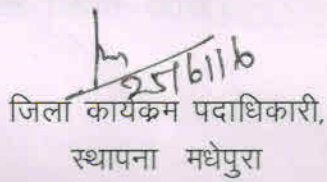 25/6/16
जिला कार्यक्रम पदाधिकारी,
स्थापना मधेपुरा